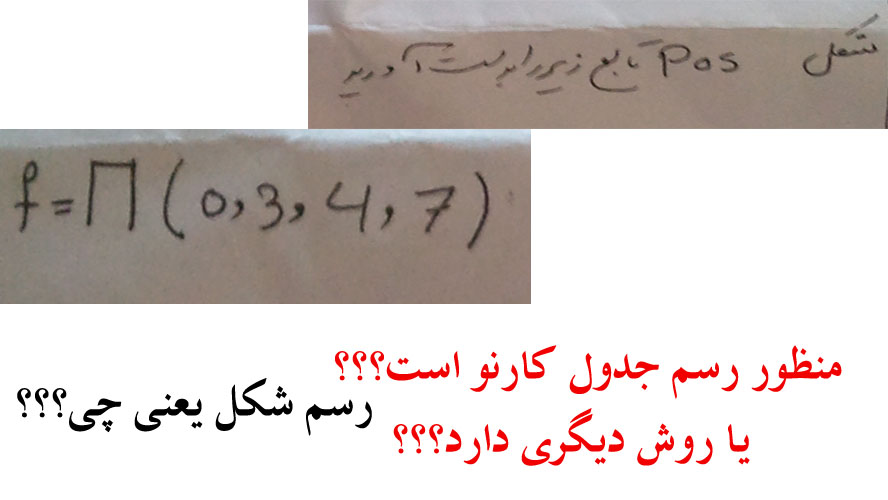 شکل Pos تابع زیر را بدست آورید
f = Π (0, 3, 4, 7)
منظور رسم جدول کارنو است؟؟؟
رسم شکل یعنی چی؟؟؟
یا روش دیگری دارد؟؟؟